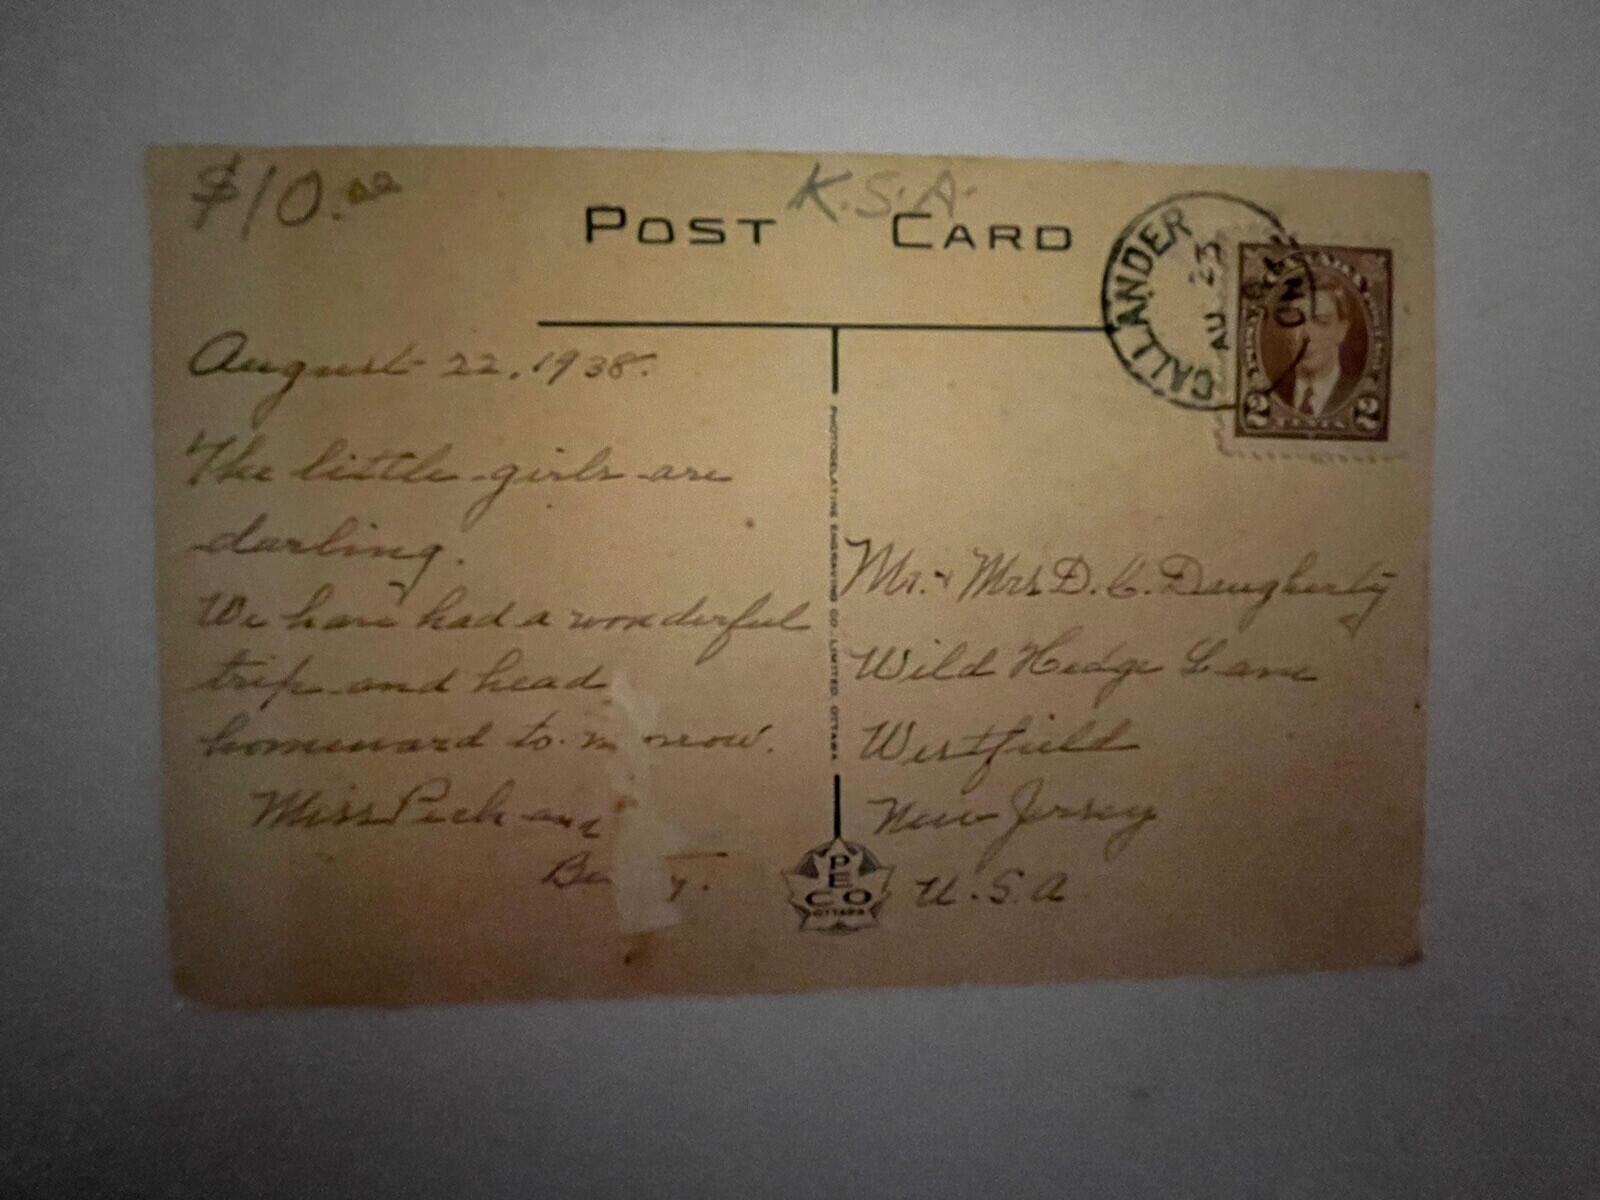 $10.00
K.S.A.
POST CARD
CALLANDER
AU 23
ONT
2 CENTS 2
August 22, 1938.
The little girls are
darling.
We have had a wonderful
trip and head
homeward to-morrow.
Miss Peck and
Be y.
PHOTOGELATINE ENGRAVING CO. LIMITED, OTTAWA
PECO
OTTAWA
Mr. & Mrs D. C. Daugherty
Wild Hedge Lane
Westfield
New Jersey
U.S.A